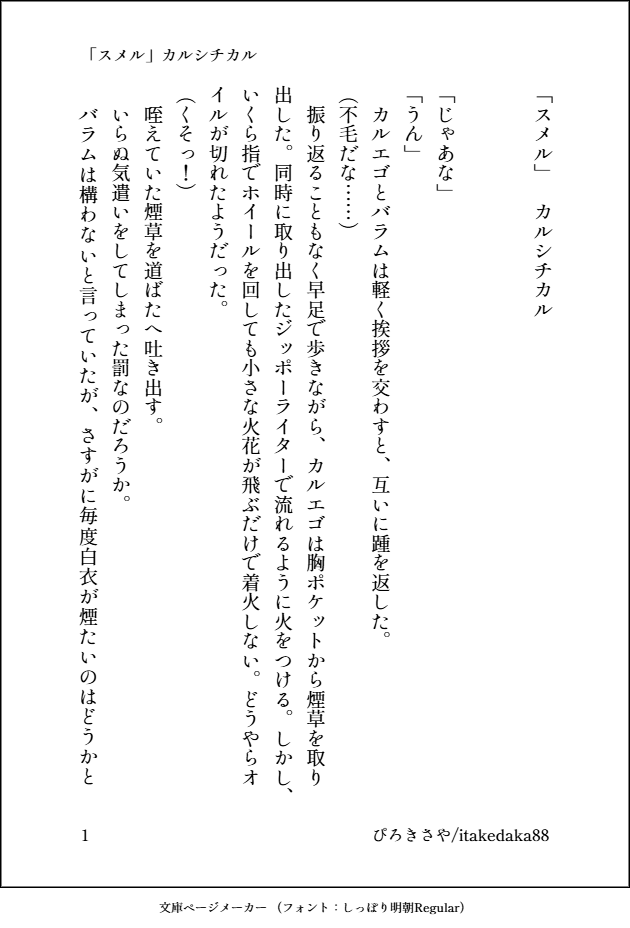 「スメル」カルシチカル
「スメル」　カルシチカル
「じゃあな」
「うん」
　カルエゴとバラムは軽く挨拶を交わすと、互いに踵を返した。
（不毛だな……）
　振り返ることもなく早足で歩きながら、カルエゴは胸ポケットから煙草を取り
出した。同時に取り出したジッポーライターで流れるように火をつける。しかし、
いくら指でホイールを回しても小さな火花が飛ぶだけで着火しない。どうやらオ
イルが切れたようだった。
（くそっ！）
　咥えていた煙草を道ばたへ吐き出す。
　いらぬ気遣いをしてしまった罰なのだろうか。
　バラムは構わないと言っていたが、さすがに毎度白衣が煙たいのはどうかと
1
ぴろきさや/itakedaka88
文庫ページメーカー （フォント：しっぽり明朝Regular）